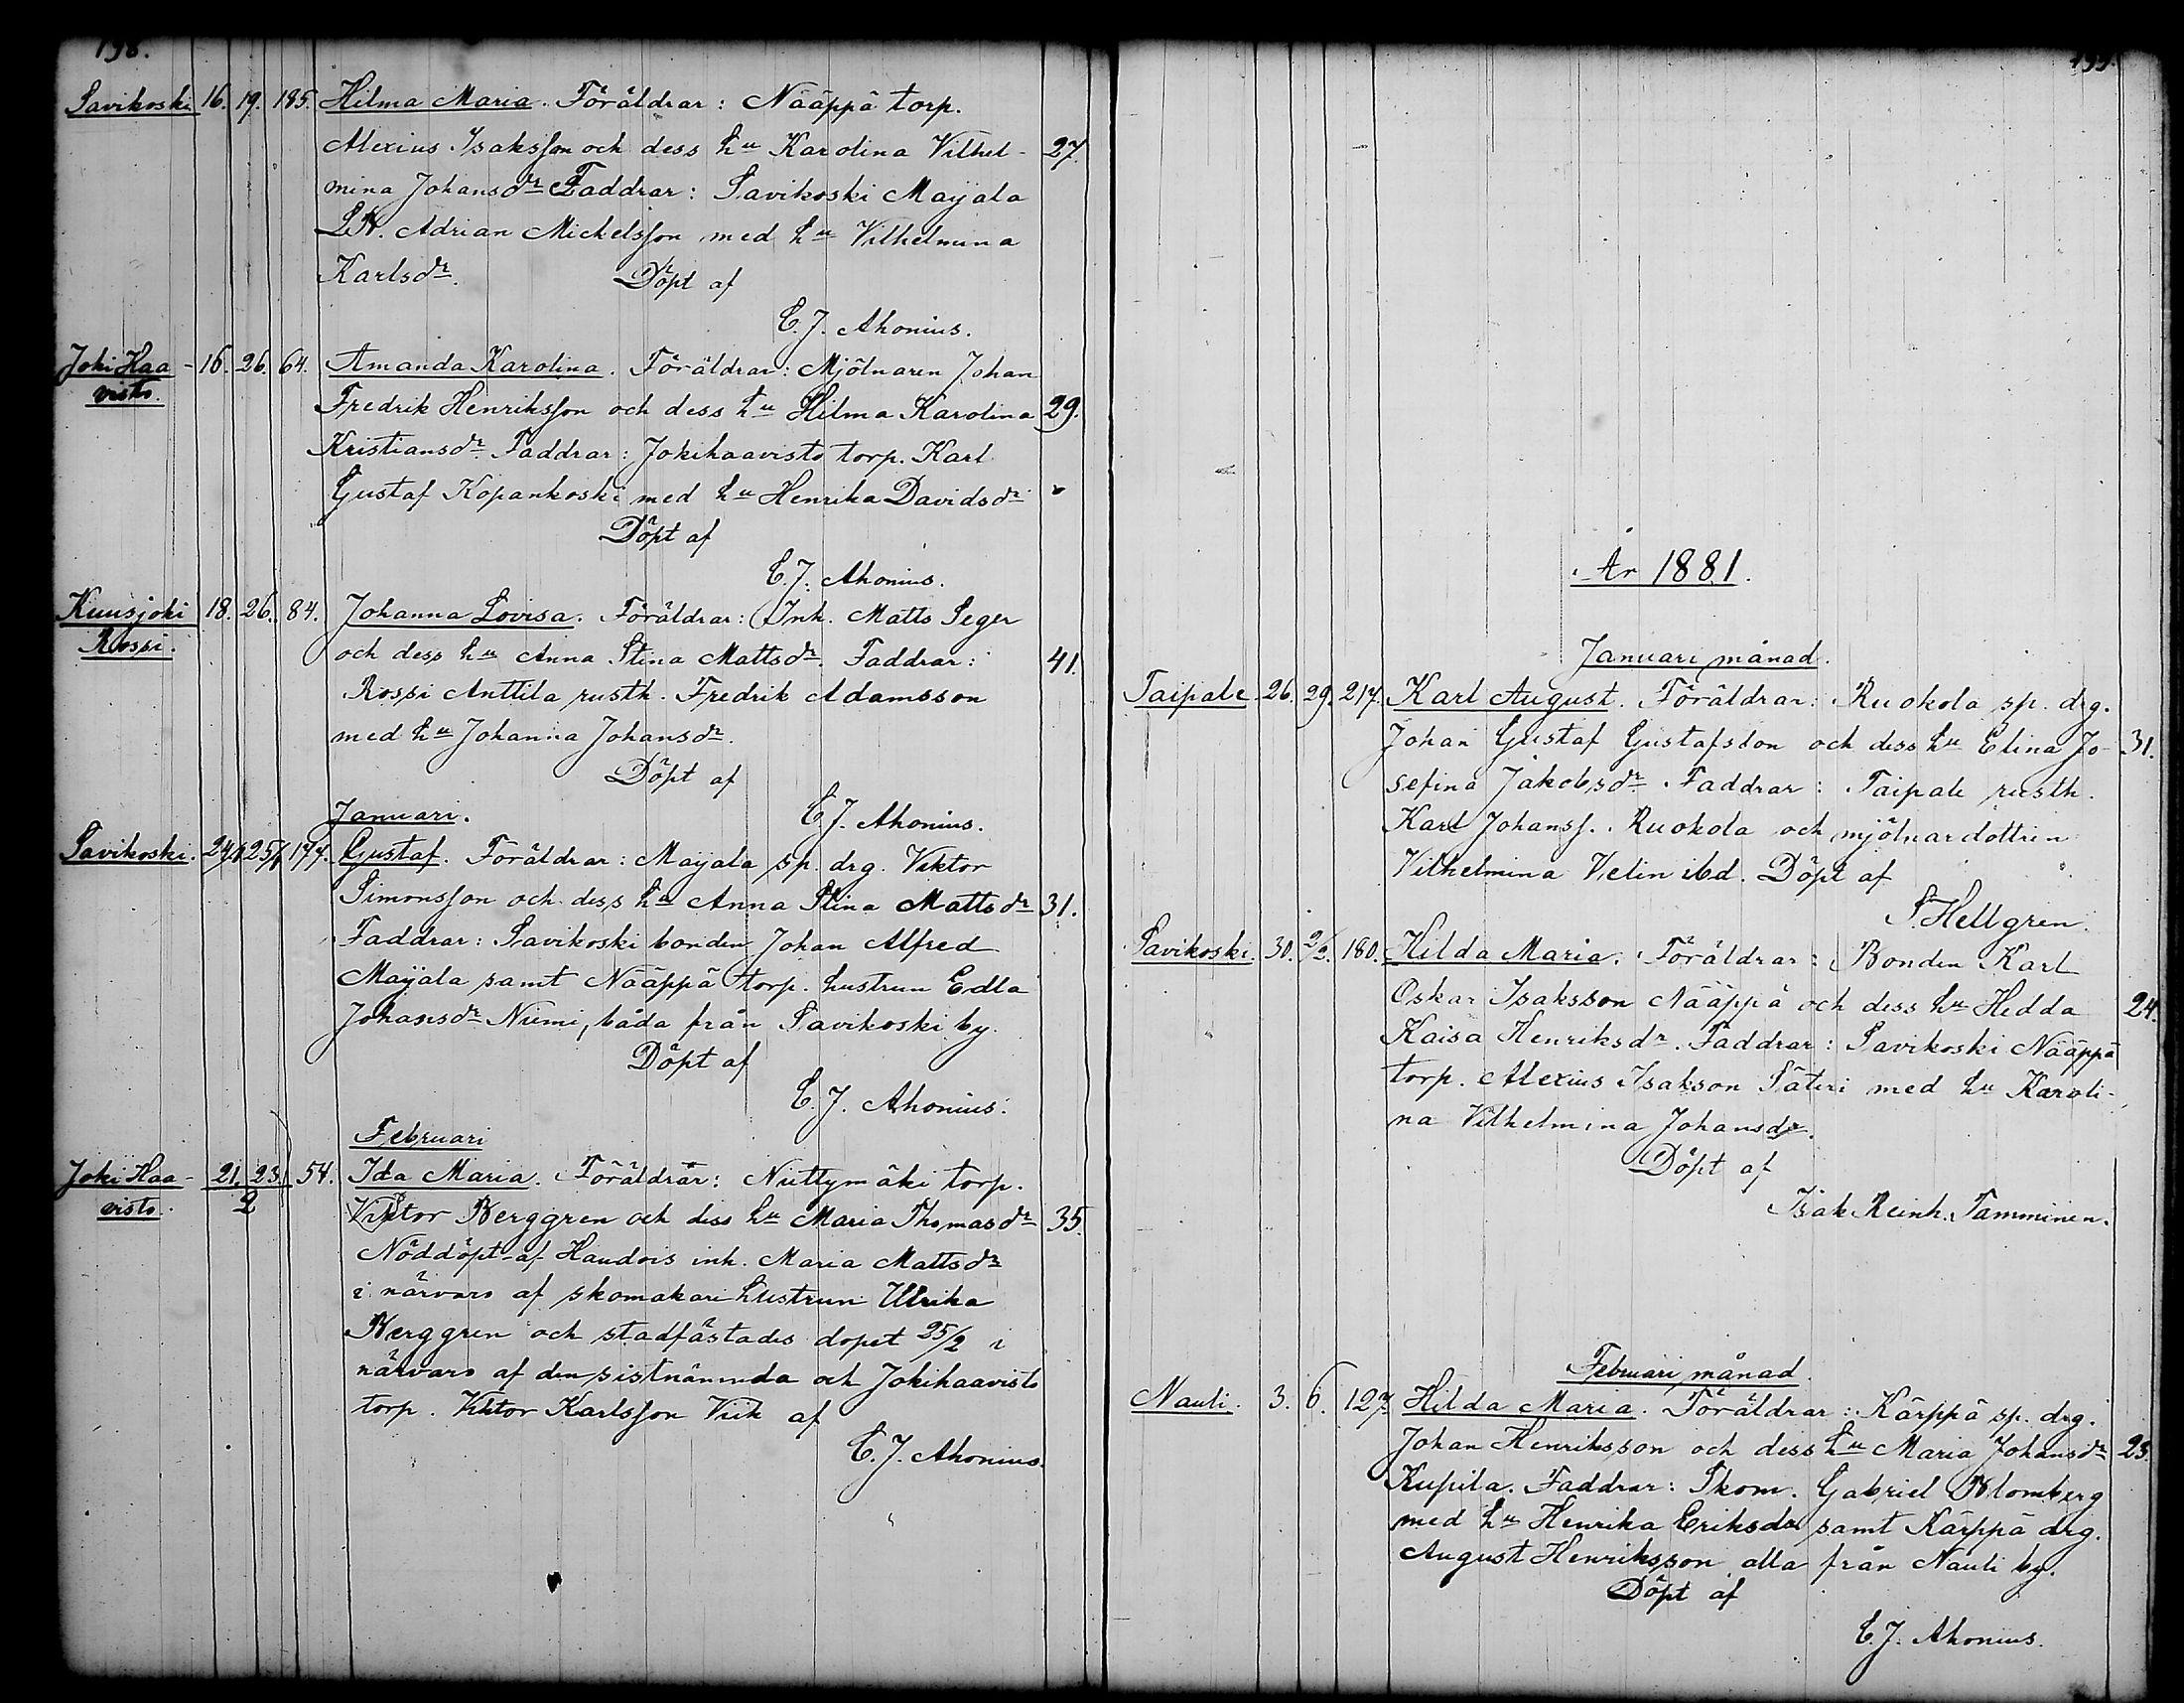 198.
Savikoski 16. 19. 185. Hilma Maria. Föräldrar: Nääppä torp.
Alexius Isaksson och dess hu Karolina Vilhel- 27.
mina Johansdr Faddrar: Savikoski Maijala
Adrian Mickelsson med hu Vilhelmina
Karlsdr. Döpt af
C. J. Ahonius.
Joki Haa- 16. 26. 64. Amanda Karolina. Föräldrar: Mjölnaren Johan
visto. Fredrik Henriksson och dess hu Hilma Karolina 29.
Kristiansdr Faddrar: Jokihaavisto torp. Karl
Gustaf Kopankoski med hu Henrika Davidsdr
Döpt af
C. J. Ahonius.
Kuusjoki 18. 26. 84. Johanna Lovisa. Föräldrar: Inh. Matts Seger
Rossi. och dess hu Anna Stina Mattsdr. Faddrar: 41.
Rossi Anttila rusth. Fredrik Adamsson
med hu Johanna Johansdr.
Döpt af
Januari. C. J. Ahonius.
Savikoski. 24/1 25/1 177. Gustaf. Föräldrar: Maijala sp. drg. Viktor
Simonsson och dess hu Anna Stina Mattsdr 31.
Faddrar: Savikoski bonden Johan Alfred
Maijala samt Nääppä torp. hustrun Edla
Johansdr Niemi, båda från Savikoski by.
Döpt af
C. J. Ahonius.
Februari
Joki Haa- 21. 23. 54. Ida Maria. Föräldrar: Niittymäki torp.
visto. 2 Viktor Berggren och dess hu Maria Thomasdr 35.
Nöddöpt af Haudois inh. Maria Mattsdr
i närvaro af skomakari hustrun Ulrika
Berggren och stadfästades dopet 25/2 i
närvaro af den sistnämnda och Jokihaavisto
torp. Viktor Karlsson Viik af
C. J. Ahonius.
199.
År 1881.
Januari månad.
Taipale 26. 29. 217. Karl August. Föräldrar: Ruokola sp. drg.
Johan Gustaf Gustafsson och dess hu Elina Jo- 31.
sefina Jakobsdr. Faddrar: Taipale rusth.
Karl Johanss. Ruokola och mjölnardottren
Vilhelmina Velin ibd. Döpt af
S. Hellgren.
Savikoski. 30. 2/2. 180. Hilda Maria. Föräldrar: Bonden Karl
Oskar Isaksson Nääppä och dess hu Hedda 24.
Kaisa Henriksdr. Faddrar: Savikoski Nääppä
torp. Alexius Isakson Säteri med hu Karoli-
na Vilhelmina Johansdr.
Döpt af
Isak Reinh. Tamminen.
Februari månad.
Nauli. 3. 6. 127 Hilda Maria. Föräldrar: Kärppä sp. drg.
Johan Henriksson och dess hu Maria Johansdr 23.
Kupila. Faddrar: Skom. Gabriel Blomberg
med hu Henrika Eriksdr samt Kärppä drg.
August Henriksson alla från Nauli by.
Döpt af
C. J. Ahonius.